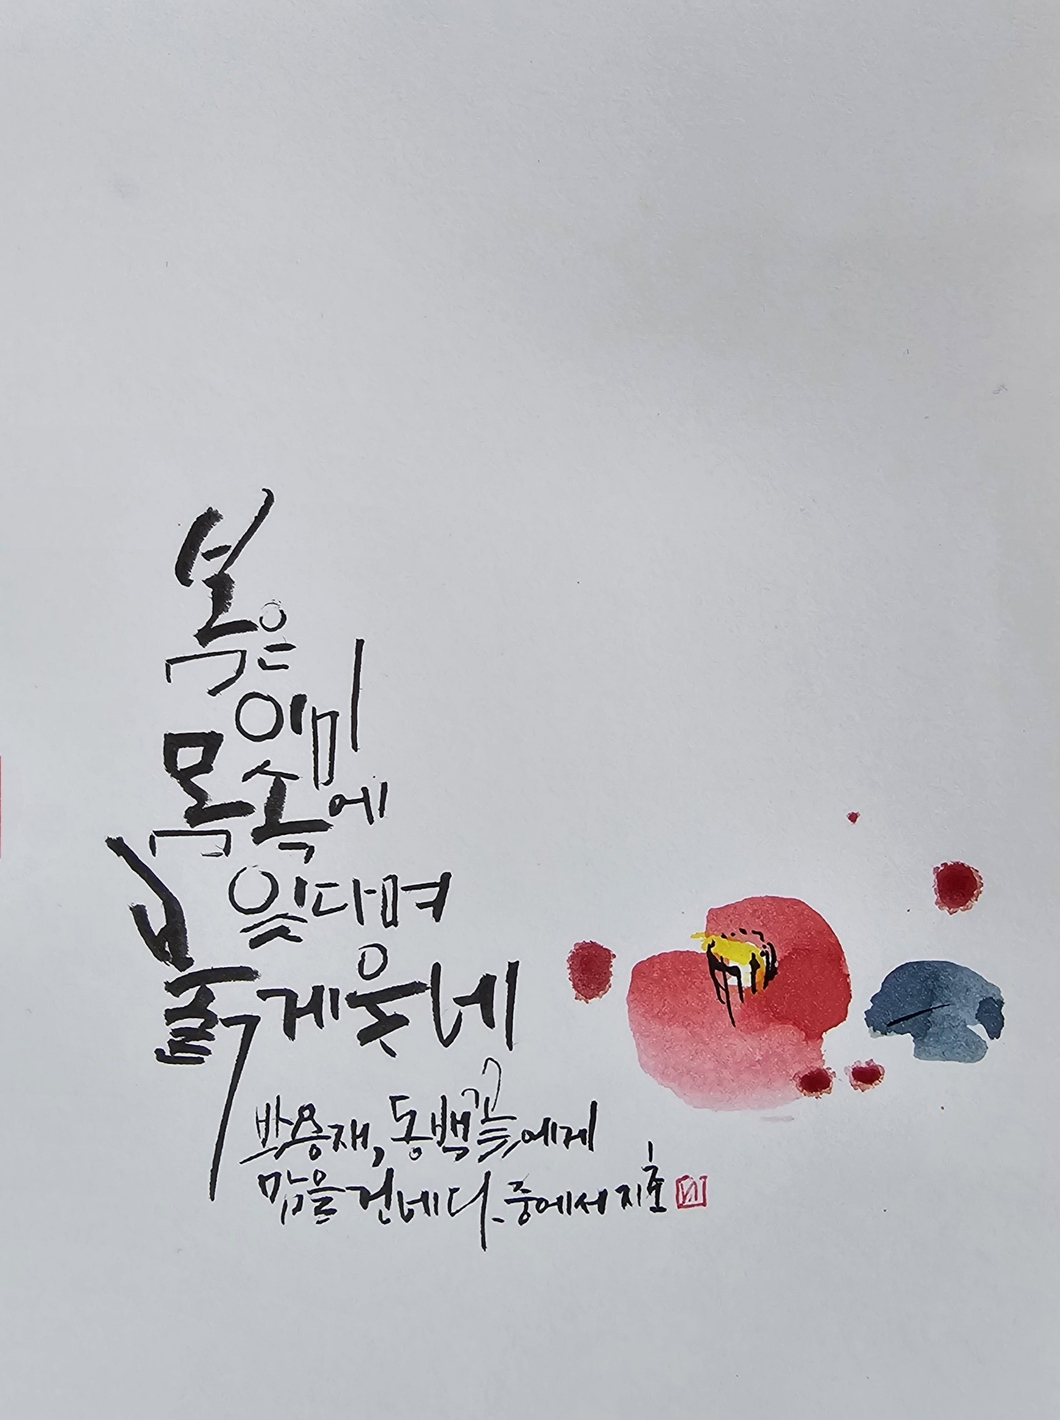 봄은
이미
몸속에
있다며
붉게 웃네
박용재, 동백꽃에게
맘을 건네다. 중에서 지호